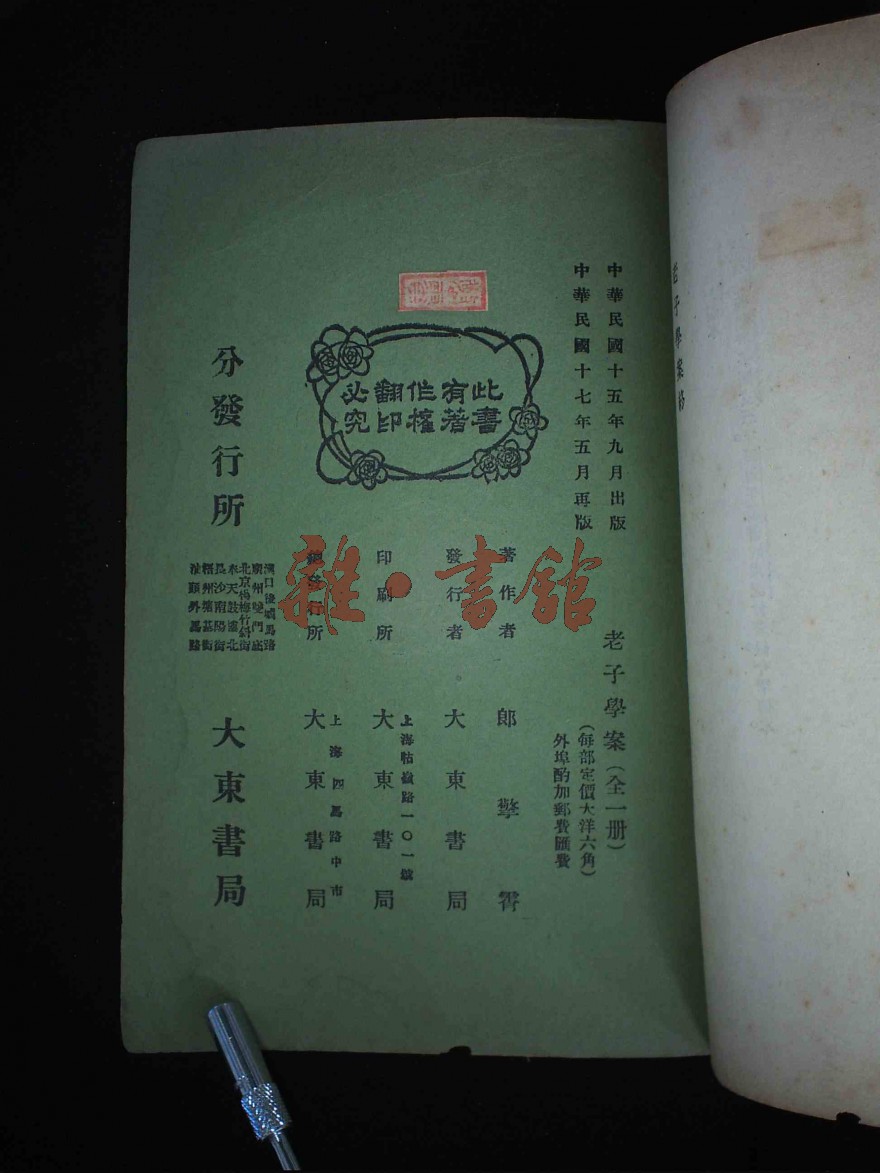 老子學案終
中華民國十五年九月出版
中華民國十七年五月再版
老子學案(全一册)
(每部定價大洋六角)
外埠酌加郵費匯費
著作者 郎擎霄
發行者 大東書局
印刷所 上海牯嶺路一〇一號 大東書局
總發行所 上海四馬路中市 大東書局
此書
有著
作權
翻印
必究
分發行所 大東書局
漢口後城馬路
廣州雙門底
北京楊梅竹斜街
奉天鼓樓北
長沙南陽街
汕頭外馬路
雜·書館